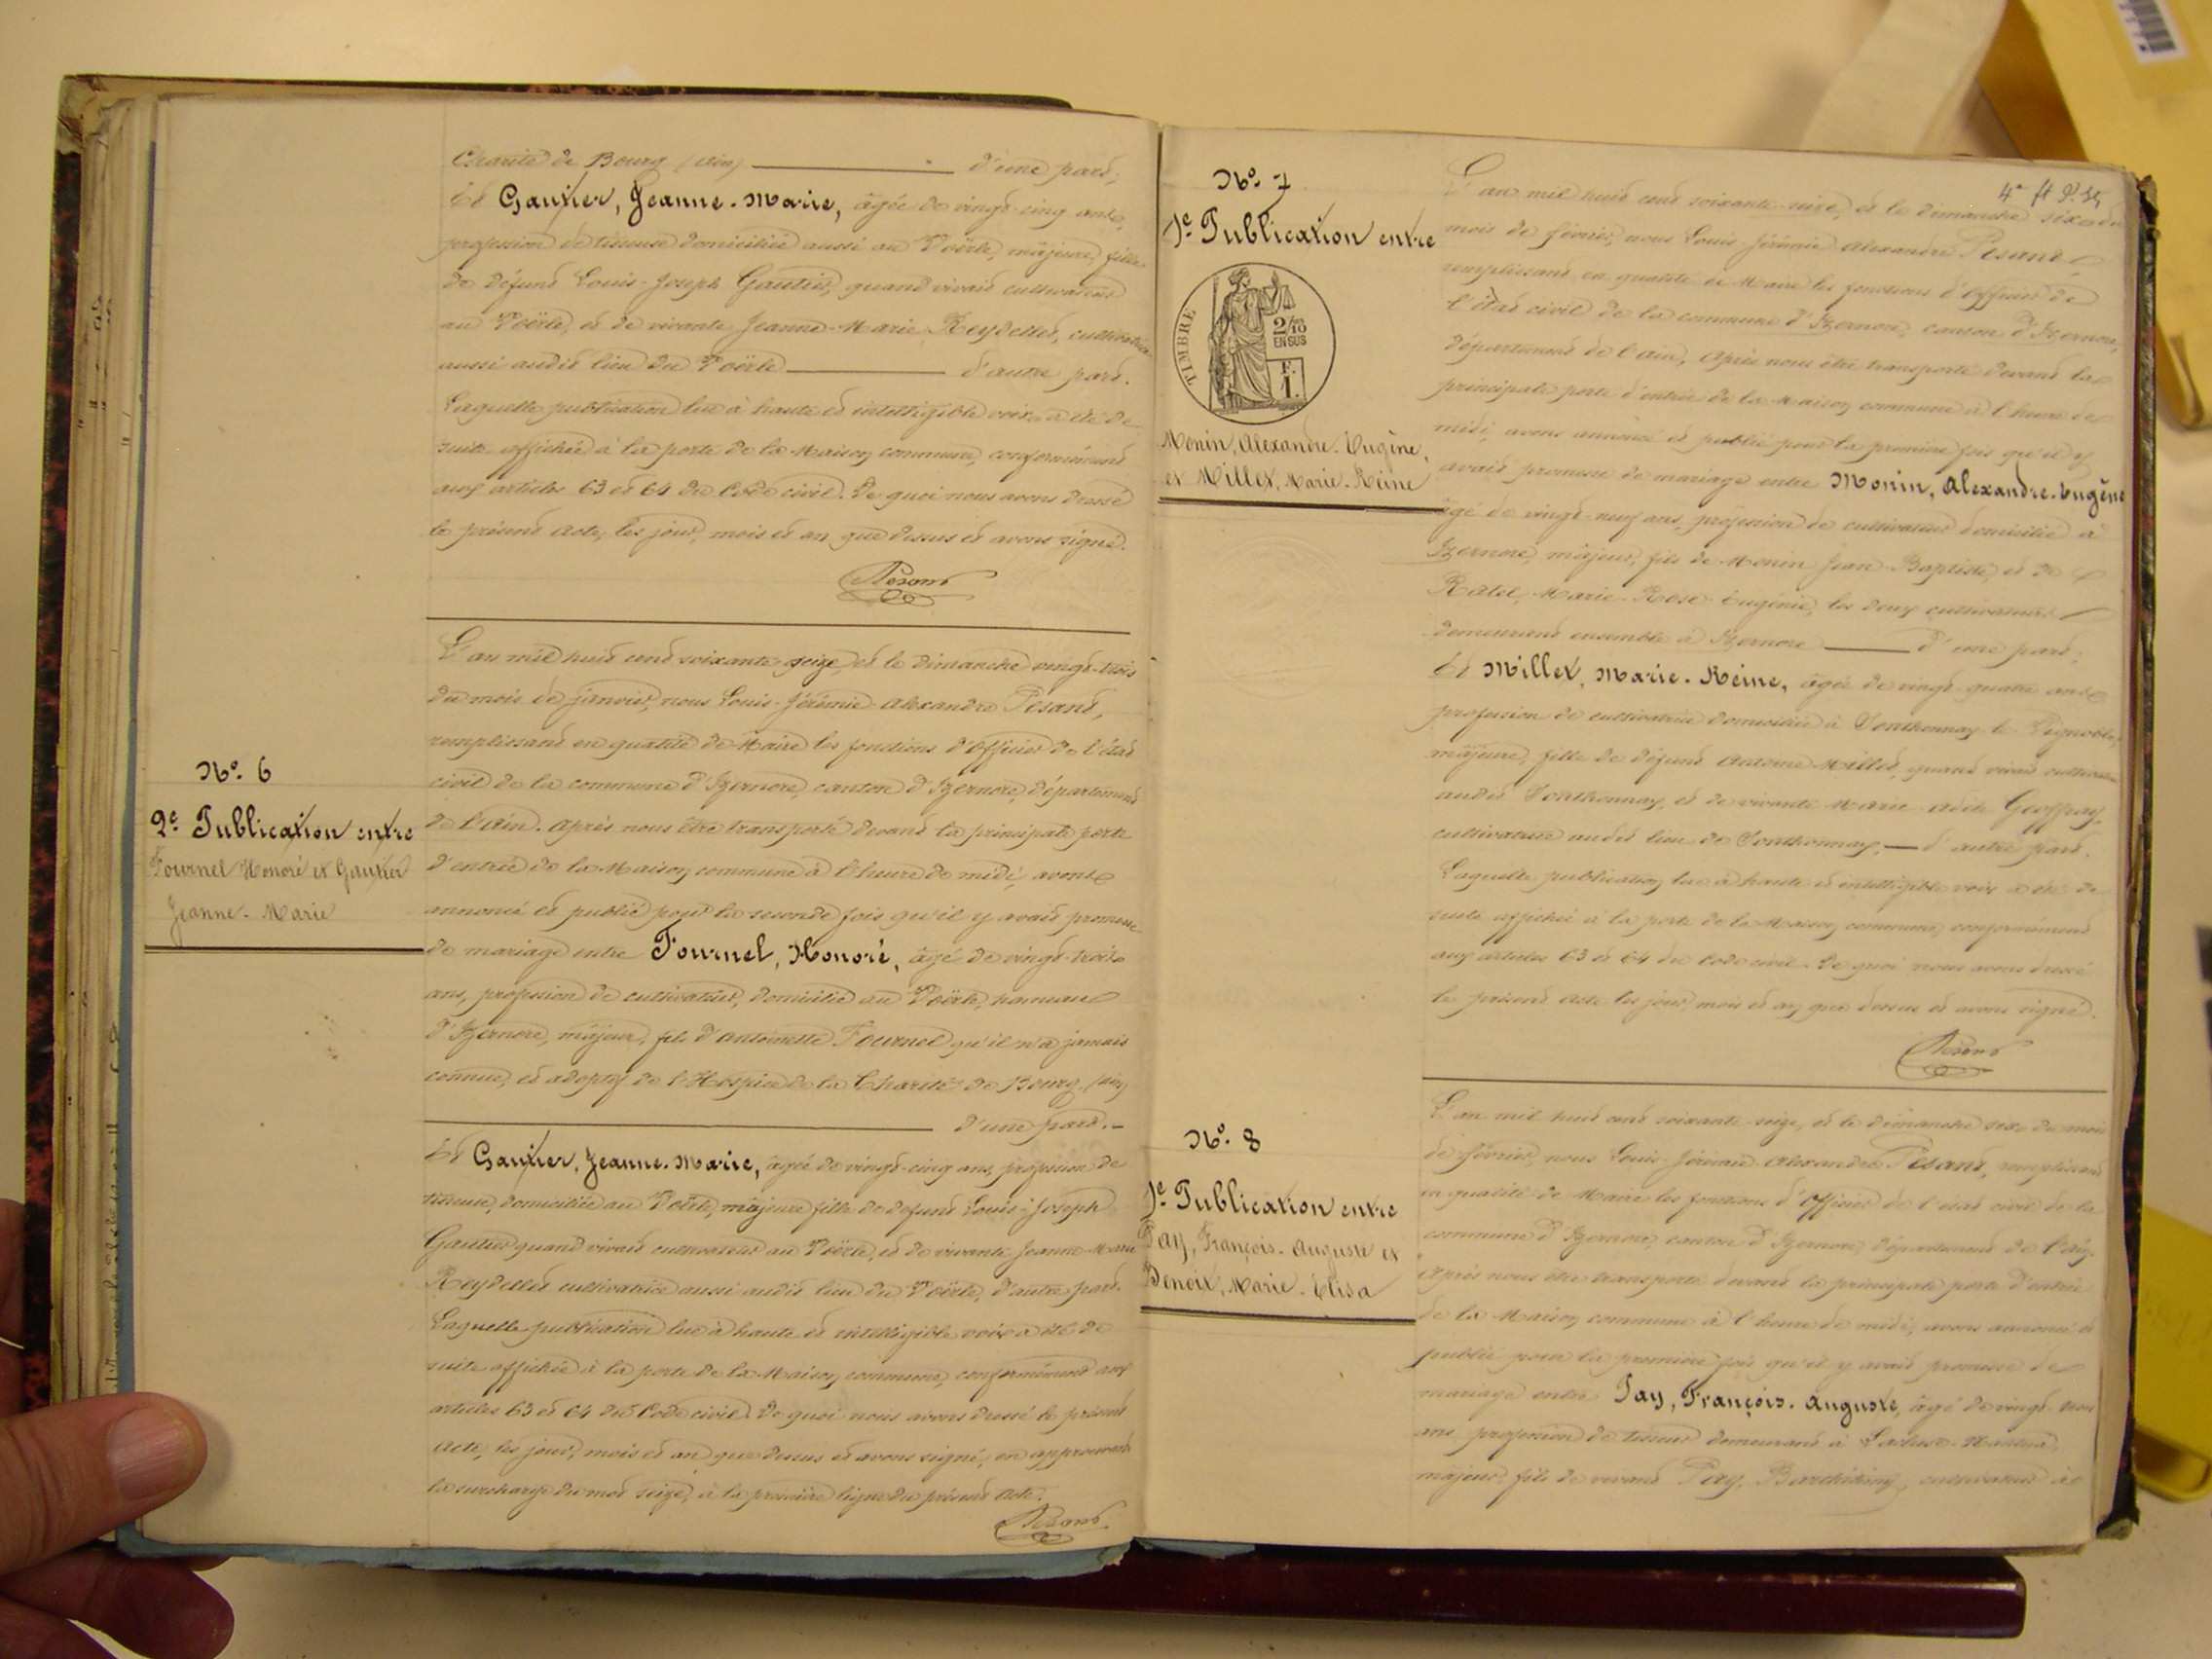 Charité de Bourg (Ain) d'une part;
Et Gautier, Jeanne-Marie, âgée de vingt-cinq ans,
profession de tisseuse domiciliée aussi au Voërle, majeure, fille
de défunt Louis-Joseph Gautier, quand vivait cultivateur
au Voërle, et de vivante Jeanne-Marie Reydellet, cultivatrice
aussi audit lieu du Voërle d'autre part.
Laquelle publication lue à haute et intelligible voix a été de
suite affichée à la porte de la Maison commune, conformément
aux articles 63 et 64 du Code civil. De quoi nous avons dressé
le présent acte, les jour, mois et an que dessus et avons signé.
Pesant
N° 6
2e Publication entre
Fournel Honoré et Gautier
Jeanne-Marie
L'an mil huit cent soixante seize, et le dimanche vingt-trois
du mois de janvier, nous Louis-Jérémie-Alexandre Pesant,
remplissant en qualité de Maire les fonctions d'officier de l'état
civil de la commune d'Izernore, canton d'Izernore, département
de l'Ain. Après nous être transporté devant la principale porte
d'entrée de la Maison commune à l'heure de midi, avons
annoncé et publié pour la seconde fois qu'il y avait promesse
de mariage entre Fournel, Honoré, âgé de vingt-trois
ans, profession de cultivateur, domicilié au Voërle, hameau
d'Izernore, majeur, fils d'Antoinette Fournel qu'il n'a jamais
connue, et adoptif de l'Hospice de la Charité de Bourg (Ain)
d'une part.
Et Gautier, Jeanne-Marie, âgée de vingt-cinq ans, profession de
tisseuse, domiciliée au Voërle, majeure fille de défunt Louis-Joseph
Gautier quand vivait cultivateur au Voërle, et de vivante Jeanne-Marie
Reydellet cultivatrice aussi audit lieu du Voërle, d'autre part.
Laquelle publication lue à haute et intelligible voix a été de
suite affichée à la porte de la Maison commune, conformément aux
articles 63 et 64 du Code civil. De quoi nous avons dressé le présent
acte, les jour, mois et an que dessus et avons signé, en approuvant
la surcharge du mot seize, à la première ligne du présent acte.
Pesant
4e
N° 7
1e Publication entre
TIMBRE
2/10
EN SUS
F.
1.
Monin, Alexandre-Eugène,
et Millet, Marie-Reine
L'an mil huit cent soixante-seize, et le dimanche six du
mois de février, nous Louis-Jérémie-Alexandre Pesant
remplissant en qualité de Maire les fonctions d'officier de
l'état civil de la commune d'Izernore, canton d'Izernore,
département de l'Ain, Après nous être transporté devant la
principale porte d'entrée de la Maison commune à l'heure de
midi, avons annoncé et publié pour la première fois qu'il y
avait promesse de mariage entre Monin, Alexandre-Eugène
âgé de vingt-neuf ans, profession de cultivateur domicilié à
Izernore, majeur, fils de Monin Jean-Baptiste, et de
Marie-Rose-Eugénie, les deux cultivateurs
demeurant ensemble à Izernore d'une part;
Et Millet, Marie-Reine, âgée de vingt-quatre ans
profession de cultivatrice domiciliée à Conthonnay-le-Vignoble,
majeure, fille de défunt Antoine Millet, quand vivait cultivateur
audit Conthonnay, et de vivante Marie-Adèle Geoffray,
cultivatrice audit lieu de Conthonnay, d'autre part.
Laquelle publication lue à haute et intelligible voix a été de
suite affichée à la porte de la Maison commune, conformément
aux articles 63 et 64 du Code civil. De quoi nous avons dressé
le présent acte les jour, mois et an que dessus et avons signé.
Pesant
N° 8
1e Publication entre
Pay, François-Auguste et
Benoit, Marie-Elisa
L'an mil huit cent soixante-seize, et le dimanche six du mois
de février, nous Louis-Jérémie-Alexandre Pesant, remplissant
en qualité de Maire les fonctions d'officier de l'état civil de la
commune d'Izernore, canton d'Izernore, département de l'Ain.
Après nous être transporté devant la principale porte d'entrée
de la Maison commune à l'heure de midi, avons annoncé et
publié pour la première fois qu'il y avait promesse de
mariage entre Pay, François-Auguste, âgé de vingt
ans profession de tisseur demeurant à
majeur, fils de vivant Pay, cultivateur à